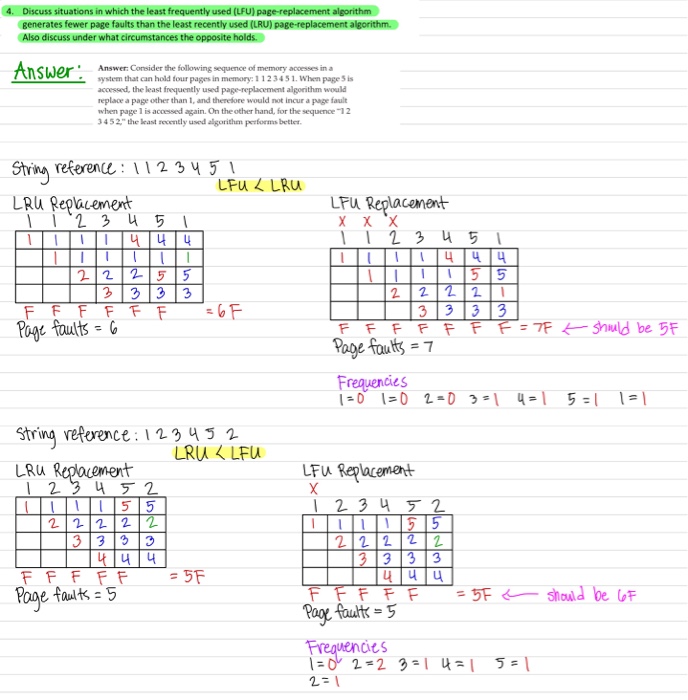 4. Discuss situations in which the least frequently used (LFU) page-replacement algorithm
generates fewer page faults than the least recently used (LRU) page-replacement algorithm.
Also discuss under what circumstances the opposite holds.
Answer:
Answer: Consider the following sequence of memory accesses in a
system that can hold four pages in memory: 1 1 2 3 4 5 1. When page 5 is
accessed, the least frequently used page-replacement algorithm would
replace a page other than 1, and therefore would not incur a page fault
when page 1 is accessed again. On the other hand, for the sequence "1 2
3 4 5 2," the least recently used algorithm performs better.
String reference: 1 1 2 3 4 5 1
LFU < LRU
LRU Replacement
1 1 2 3 4 5 1
1 1 1 1 4 4 4
1 1 1 1 1 1
2 2 2 5 5
3 3 3 3
F F F F F F = 6F
Page faults = 6
LFU Replacement
X X X
1 1 2 3 4 5 1
1 1 1 1 4 4 4
1 1 1 1 5 5
2 2 2 2 1
3 3 3 3
F F F F F F F = 7F ← should be 5F
Page faults = 7
Frequencies
1=0 1=0 2=0 3=1 4=1 5=1 1=1
String reference: 1 2 3 4 5 2
LRU < LFU
LRU Replacement
1 2 3 4 5 2
1 1 1 1 5 5
2 2 2 2 2
3 3 3 3
4 4 4
F F F F F = 5F
Page faults = 5
LFU Replacement
X
1 2 3 4 5 2
1 1 1 1 5 5
2 2 2 2 2
3 3 3 3
4 4 4
F F F F F = 5F ← should be 6F
Page faults = 5
Frequencies
1=0 2=2 3=1 4=1 5=1
2=1